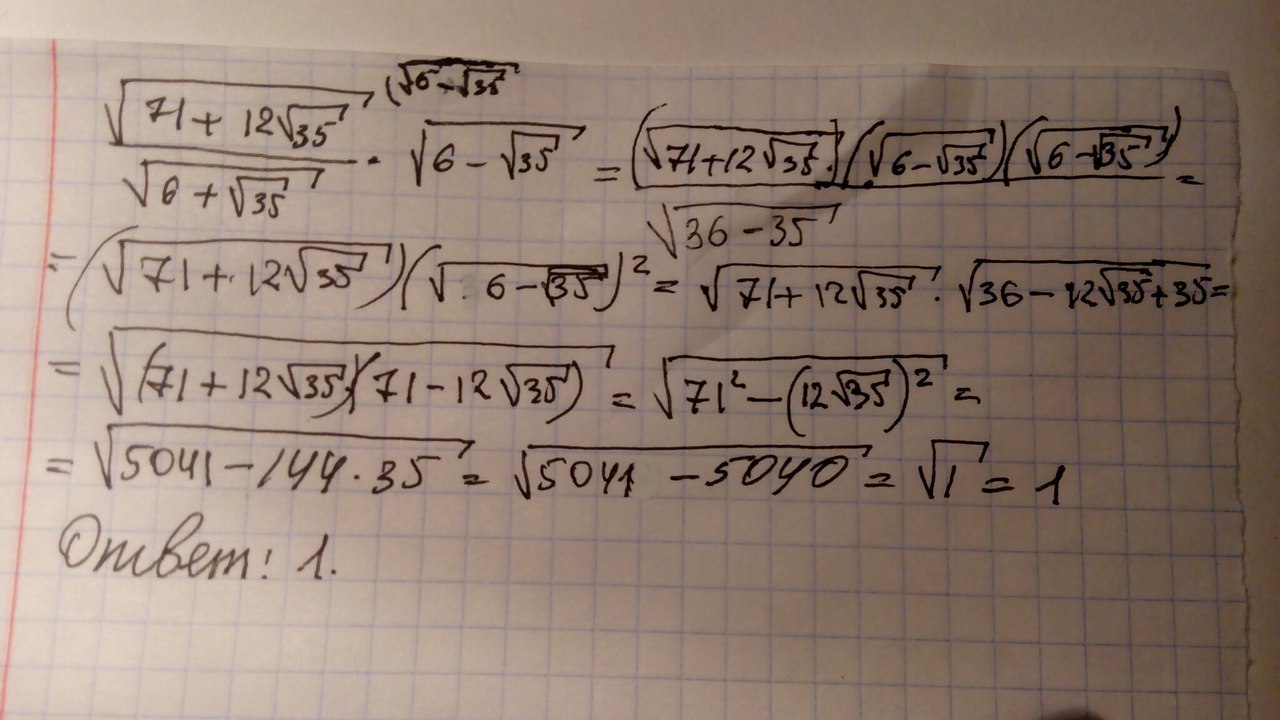 √(71 + 12√35) / √(6 + √35) (√(6 - √35) · √(6 - √35) = (√(71 + 12√35))(√(6 - √35))(√(6 - √35)) / √(36 - 35) =
= (√(71 + 12√35))(√(6 - √35))² = √(71 + 12√35) · √(36 - 12√35 + 35) =
= √((71 + 12√35)(71 - 12√35)) = √(71² - (12√35)²) =
= √(5041 - 144 · 35) = √(5041 - 5040) = √1 = 1
Ответ: 1.